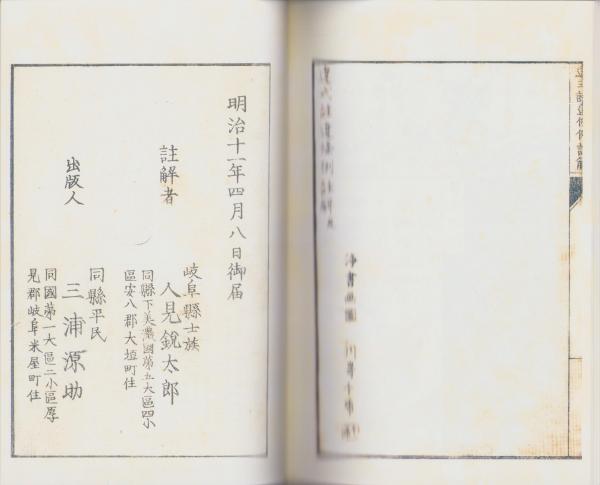 違式詿違條例註解
淨書
明治十一年四月八日御届
註解者
岐阜縣士族
人見銳太郎
同縣下美濃國第五大區四小
區安八郡大垣町住
出版人
同縣平民
三浦源助
同國第一大區二小區厚
見郡岐阜米屋町住